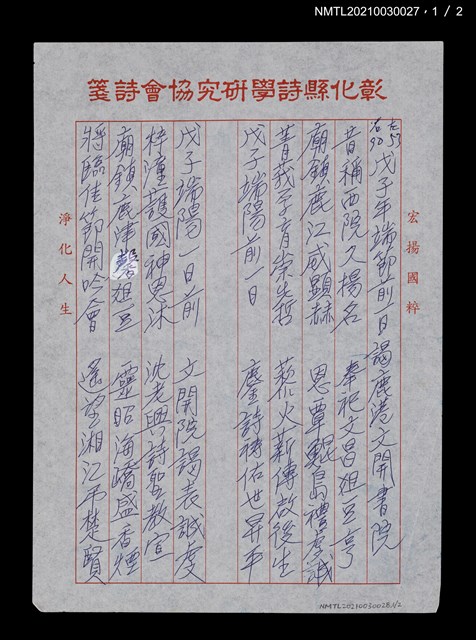 NMTL20210030027，1 / 2
彰化縣詩學研究協會詩箋
宏揚國粹
左53
右90
戊子年端節前一日謁鹿港文開書院
昔稱西院久揚名 奉祀文昌俎豆亨
廟鎮鹿江威顯赫 恩覃鯤島禮虔誠
菁莪孕育崇先哲 薪傳啟後生
戊子端陽前一日 詩禱佑世昇平
戊子端陽一日前 文開院謁表誠虔
梓潼護國神恩沐 沈老興詩聖教宣
廟鎮鹿津馨俎豆 靈昭海嶠盛香煙
將臨佳節開吟會 遥望湘江弔楚賢
淨化人生
NMTL20210030028.1/2